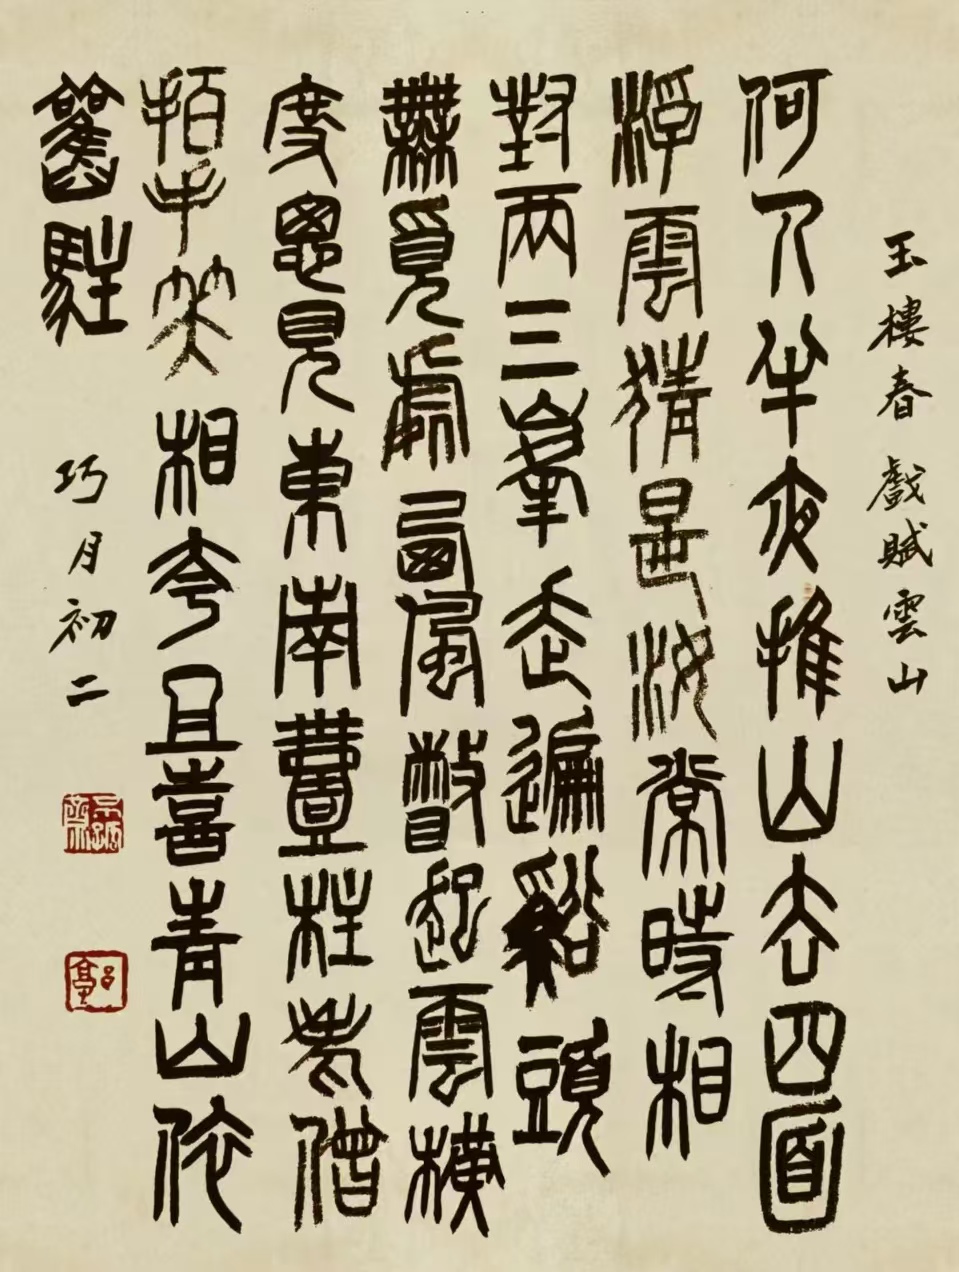 玉樓春 戲賦雲山
何人半夜推山去四面
浮雲猜是汝常時相
對兩三峯走遍谿頭
無覓處西風瞥起雲橫
度忽見東南柱老僧
拍手笑相夸且喜青山依
舊駐
巧月初二